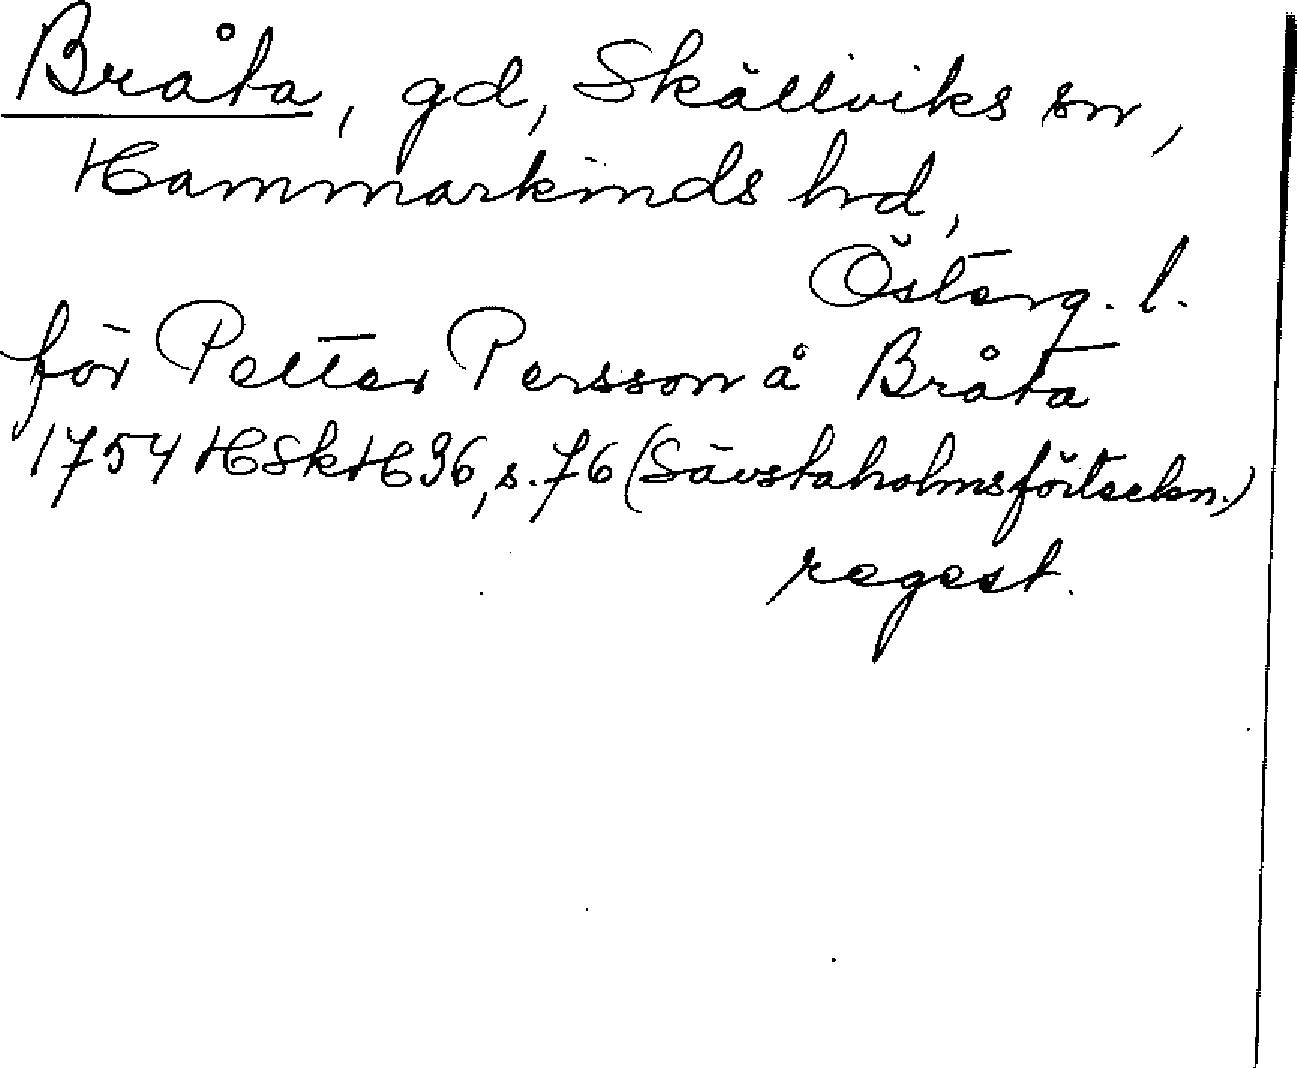 Bråta, gd, Skällviks sn,
Hammarkinds hd,
Österg. l.
för Petter Persson å Bråta
1754 HSkH 36, s. 76 (Sävstaholmsförteckn.)
regest.